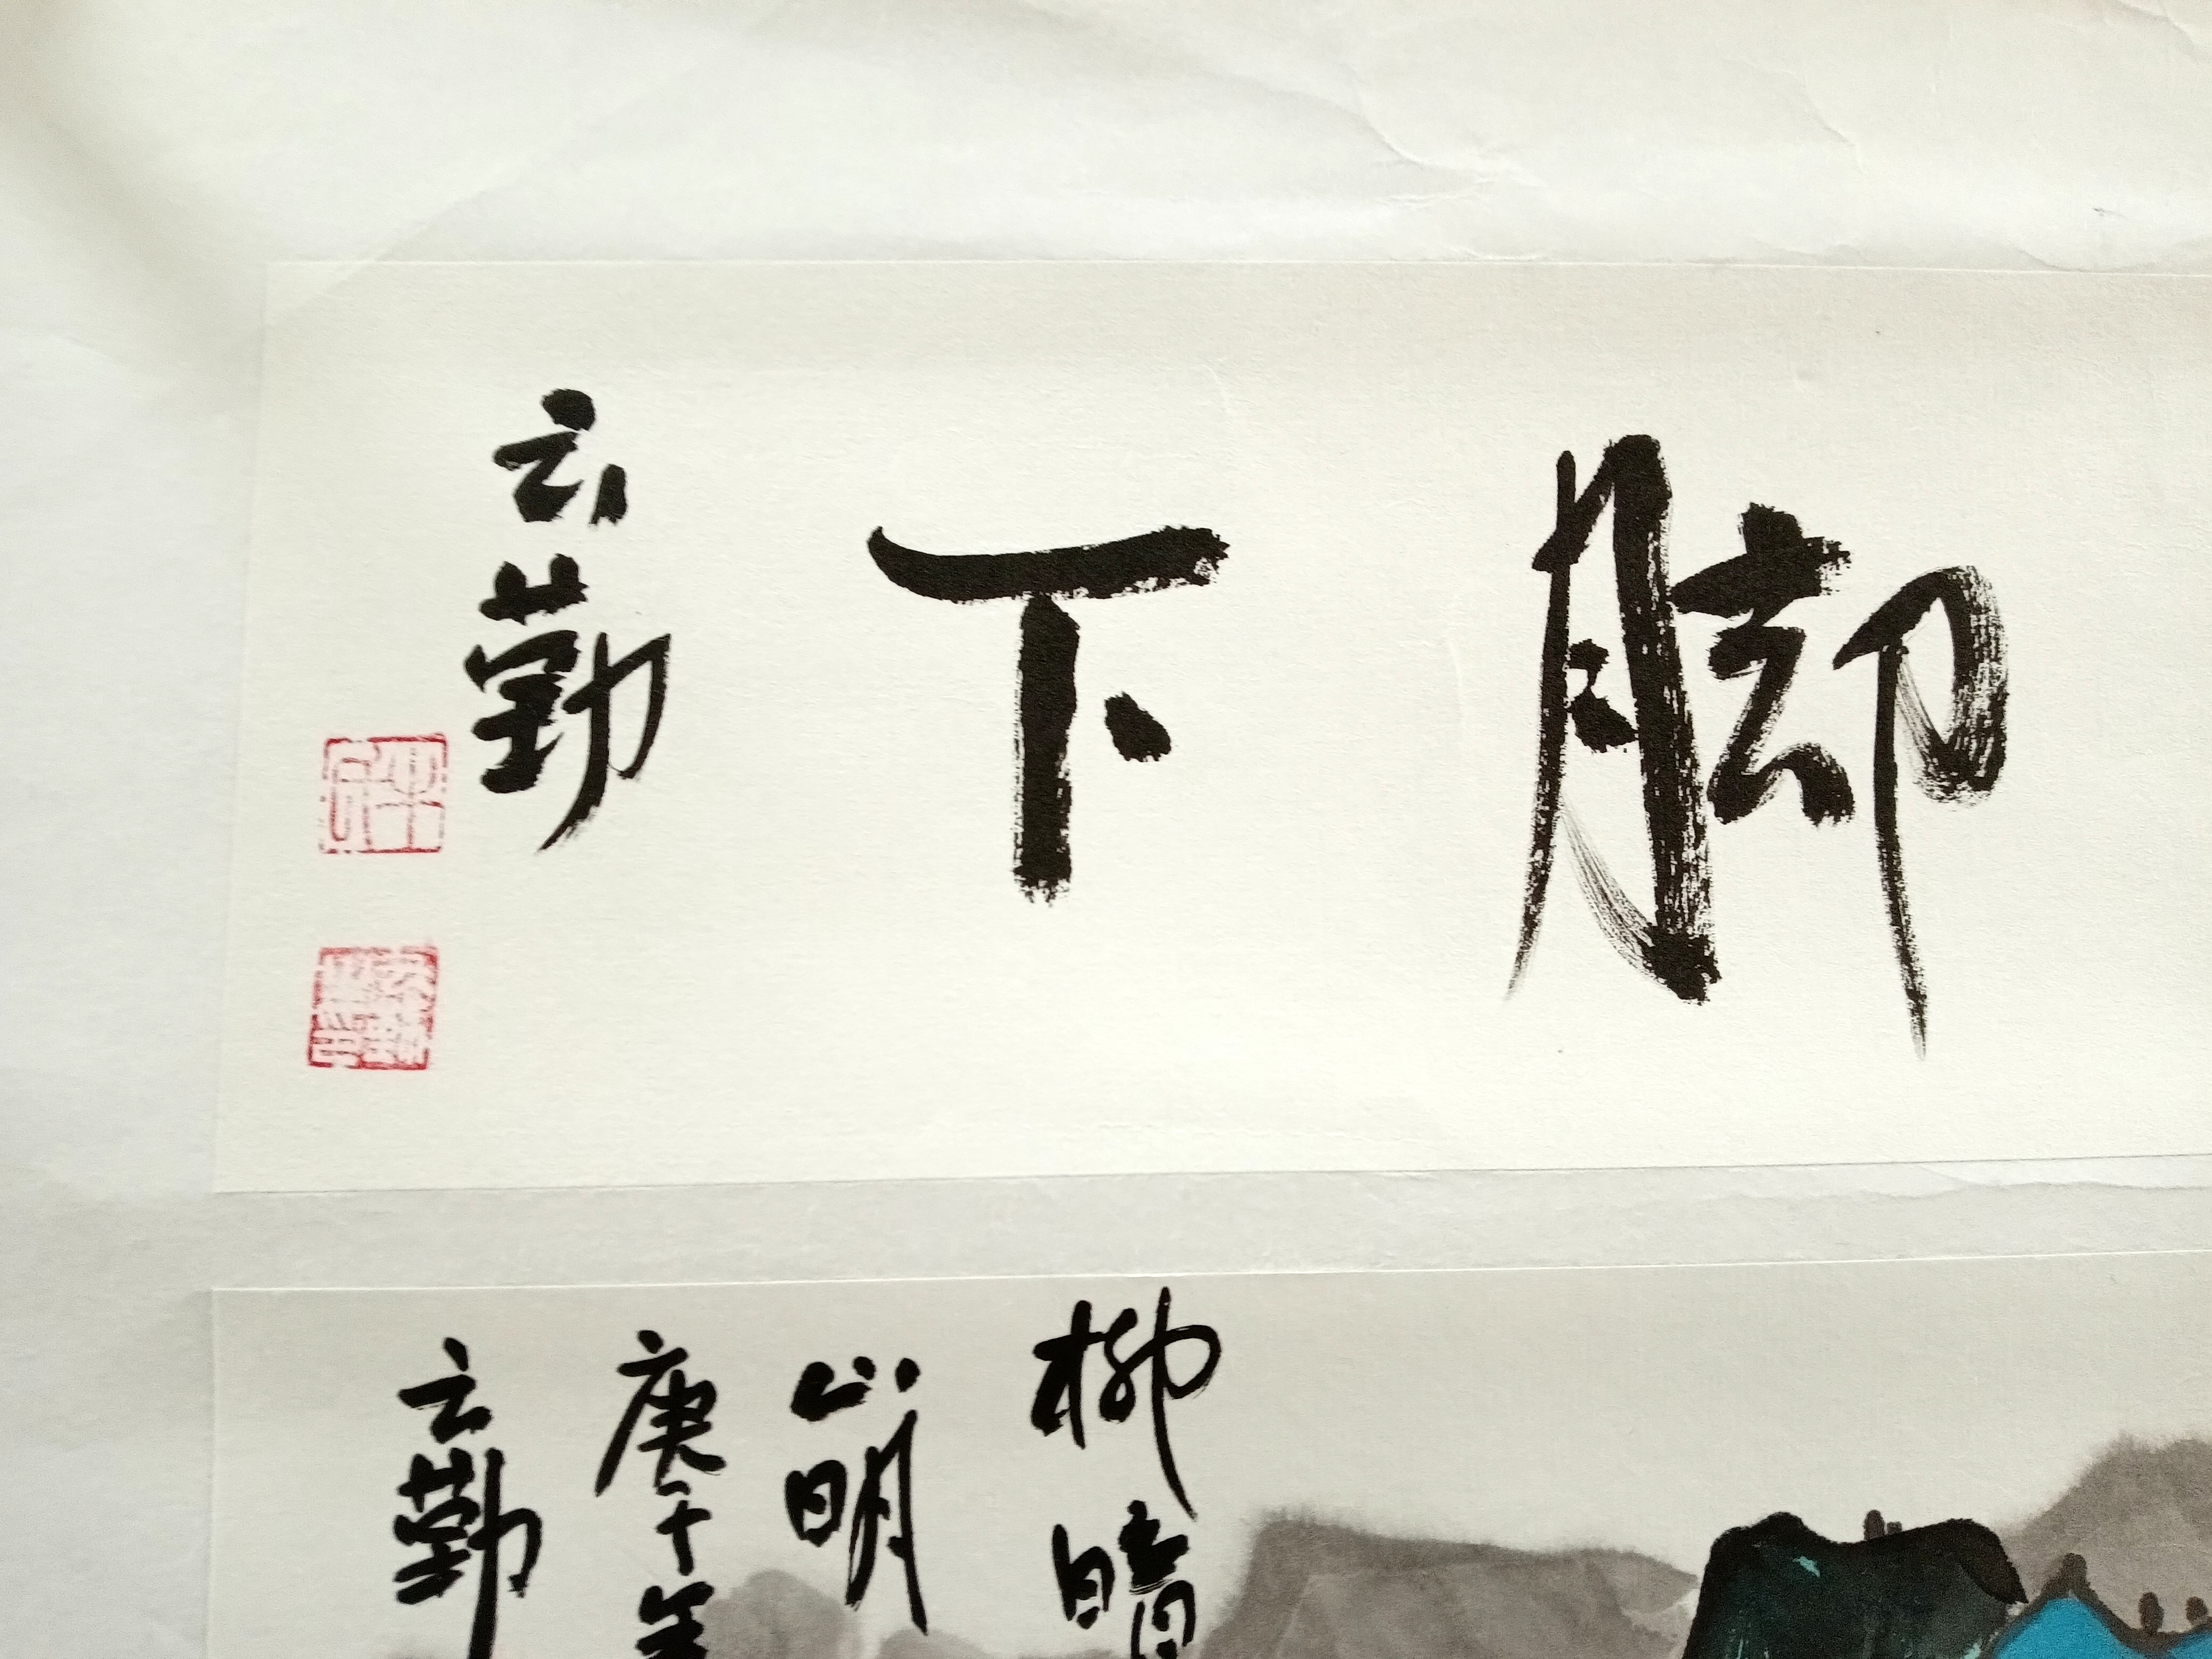 脚下
云勤
柳暗
山明
庚子年
云勤